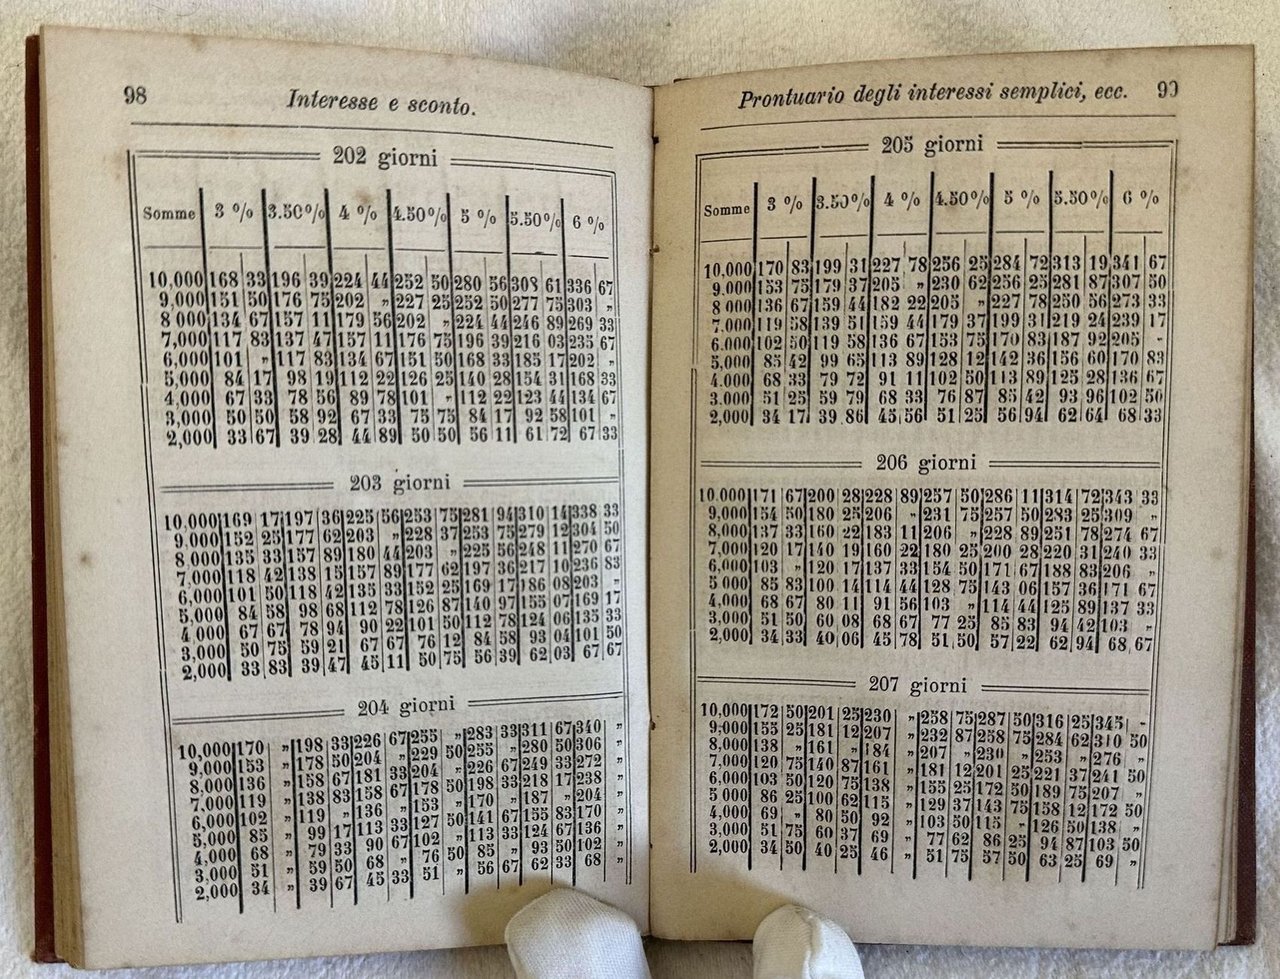 98
Interesse e sconto.
202 giorni
Somme 3 % 3.50% 4 % 4.50% 5 % 5.50% 6 %
10,000 168 33 196 39 224 44 252 50 280 56 308 61 336 67
9,000 151 50 176 75 202 „ 227 25 252 50 277 75 303 „
8 000 134 67 157 11 179 56 202 „ 224 44 246 89 269 33
7,000 117 83 137 47 157 11 176 75 196 39 216 03 235 67
6,000 101 „ 117 83 134 67 151 50 168 33 185 17 202 „
5,000 84 17 98 19 112 22 126 25 140 28 154 31 168 33
4,000 67 33 78 56 89 78 101 „ 112 22 123 44 134 67
3,000 50 50 58 92 67 33 75 75 84 17 92 58 101 „
2,000 33 67 39 28 44 89 50 50 56 11 61 72 67 33
203 giorni
10,000 169 17 197 36 225 56 253 75 281 94 310 14 338 33
9,000 152 25 177 62 203 „ 228 37 253 75 279 12 304 50
8,000 135 33 157 89 180 44 203 „ 225 56 248 11 270 67
7,000 118 42 138 15 157 89 177 62 197 36 217 10 236 83
6,000 101 50 118 42 135 33 152 25 169 17 186 08 203 „
5,000 84 58 98 68 112 78 126 87 140 97 155 07 169 17
4,000 67 67 78 94 90 22 101 50 112 78 124 06 135 33
3,000 50 75 59 21 67 67 76 12 84 58 93 04 101 50
2,000 33 83 39 47 45 11 50 75 56 39 62 03 67 67
204 giorni
10,000 170 „ 198 33 226 67 255 „ 283 33 311 67 340 „
9,000 153 „ 178 50 204 „ 229 50 255 „ 280 50 306 „
8,000 136 „ 158 67 181 33 204 „ 226 67 249 33 272 „
7,000 119 „ 138 83 158 67 178 50 198 33 218 17 238 „
6,000 102 „ 119 „ 136 „ 153 „ 170 „ 187 „ 204 „
5,000 85 „ 99 17 113 33 127 50 141 67 155 83 170 „
4,000 68 „ 79 33 90 67 102 „ 113 33 124 67 136 „
3,000 51 „ 59 50 68 „ 76 50 85 „ 93 50 102 „
2,000 34 „ 39 67 45 33 51 „ 56 67 62 33 68 „
Prontuario degli interessi semplici, ecc.
99
205 giorni
Somme 3 % 3.50% 4 % 4.50% 5 % 5.50% 6 %
10,000 170 83 199 31 227 78 256 25 284 72 313 19 341 67
9.000 153 75 179 37 205 „ 230 62 256 25 281 87 307 50
8 000 136 67 159 44 182 22 205 „ 227 78 250 56 273 33
7.000 119 58 139 51 159 44 179 37 199 31 219 24 239 17
6.000 102 50 119 58 136 67 153 75 170 83 187 92 205 „
5,000 85 42 99 65 113 89 128 12 142 36 156 60 170 83
4.000 68 33 79 72 91 11 102 50 113 89 125 28 136 67
3.000 51 25 59 79 68 33 76 87 85 42 93 96 102 50
2,000 34 17 39 86 45 56 51 25 56 94 62 64 68 33
206 giorni
10.000 171 67 200 28 228 89 257 50 286 11 314 72 343 33
9,000 154 50 180 25 206 „ 231 75 257 50 283 25 309 „
8,000 137 33 160 22 183 11 206 „ 228 89 251 78 274 67
7,000 120 17 140 19 160 22 180 25 200 28 220 31 240 33
6,000 103 „ 120 17 137 33 154 50 171 67 188 83 206 „
5 000 85 83 100 14 114 44 128 75 143 06 157 36 171 67
4,000 68 67 80 11 91 56 103 „ 114 44 125 89 137 33
3,000 51 50 60 08 68 67 77 25 85 83 94 42 103 „
2,000 34 33 40 06 45 78 51 50 57 22 62 94 68 67
207 giorni
10,000 172 50 201 25 230 „ 258 75 287 50 316 25 345 „
9,000 155 25 181 12 207 „ 232 87 258 75 284 62 310 50
8,000 138 „ 161 „ 184 „ 207 „ 230 „ 253 „ 276 „
7,000 120 75 140 87 161 „ 181 12 201 25 221 37 241 50
6,000 103 50 120 75 138 „ 155 25 172 50 189 75 207 „
5 000 86 25 100 62 115 „ 129 37 143 75 158 12 172 50
4,000 69 „ 80 50 92 „ 103 50 115 „ 126 50 138 „
3,000 51 75 60 37 69 „ 77 62 86 25 94 87 103 50
2,000 34 50 40 25 46 „ 51 75 57 50 63 25 69 „